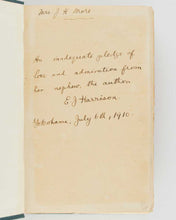 Mrs J H More
An inadequate pledge of
love and admiration from
her nephew, the author
E J Harrison
Yokohama, July 6th, 1910.